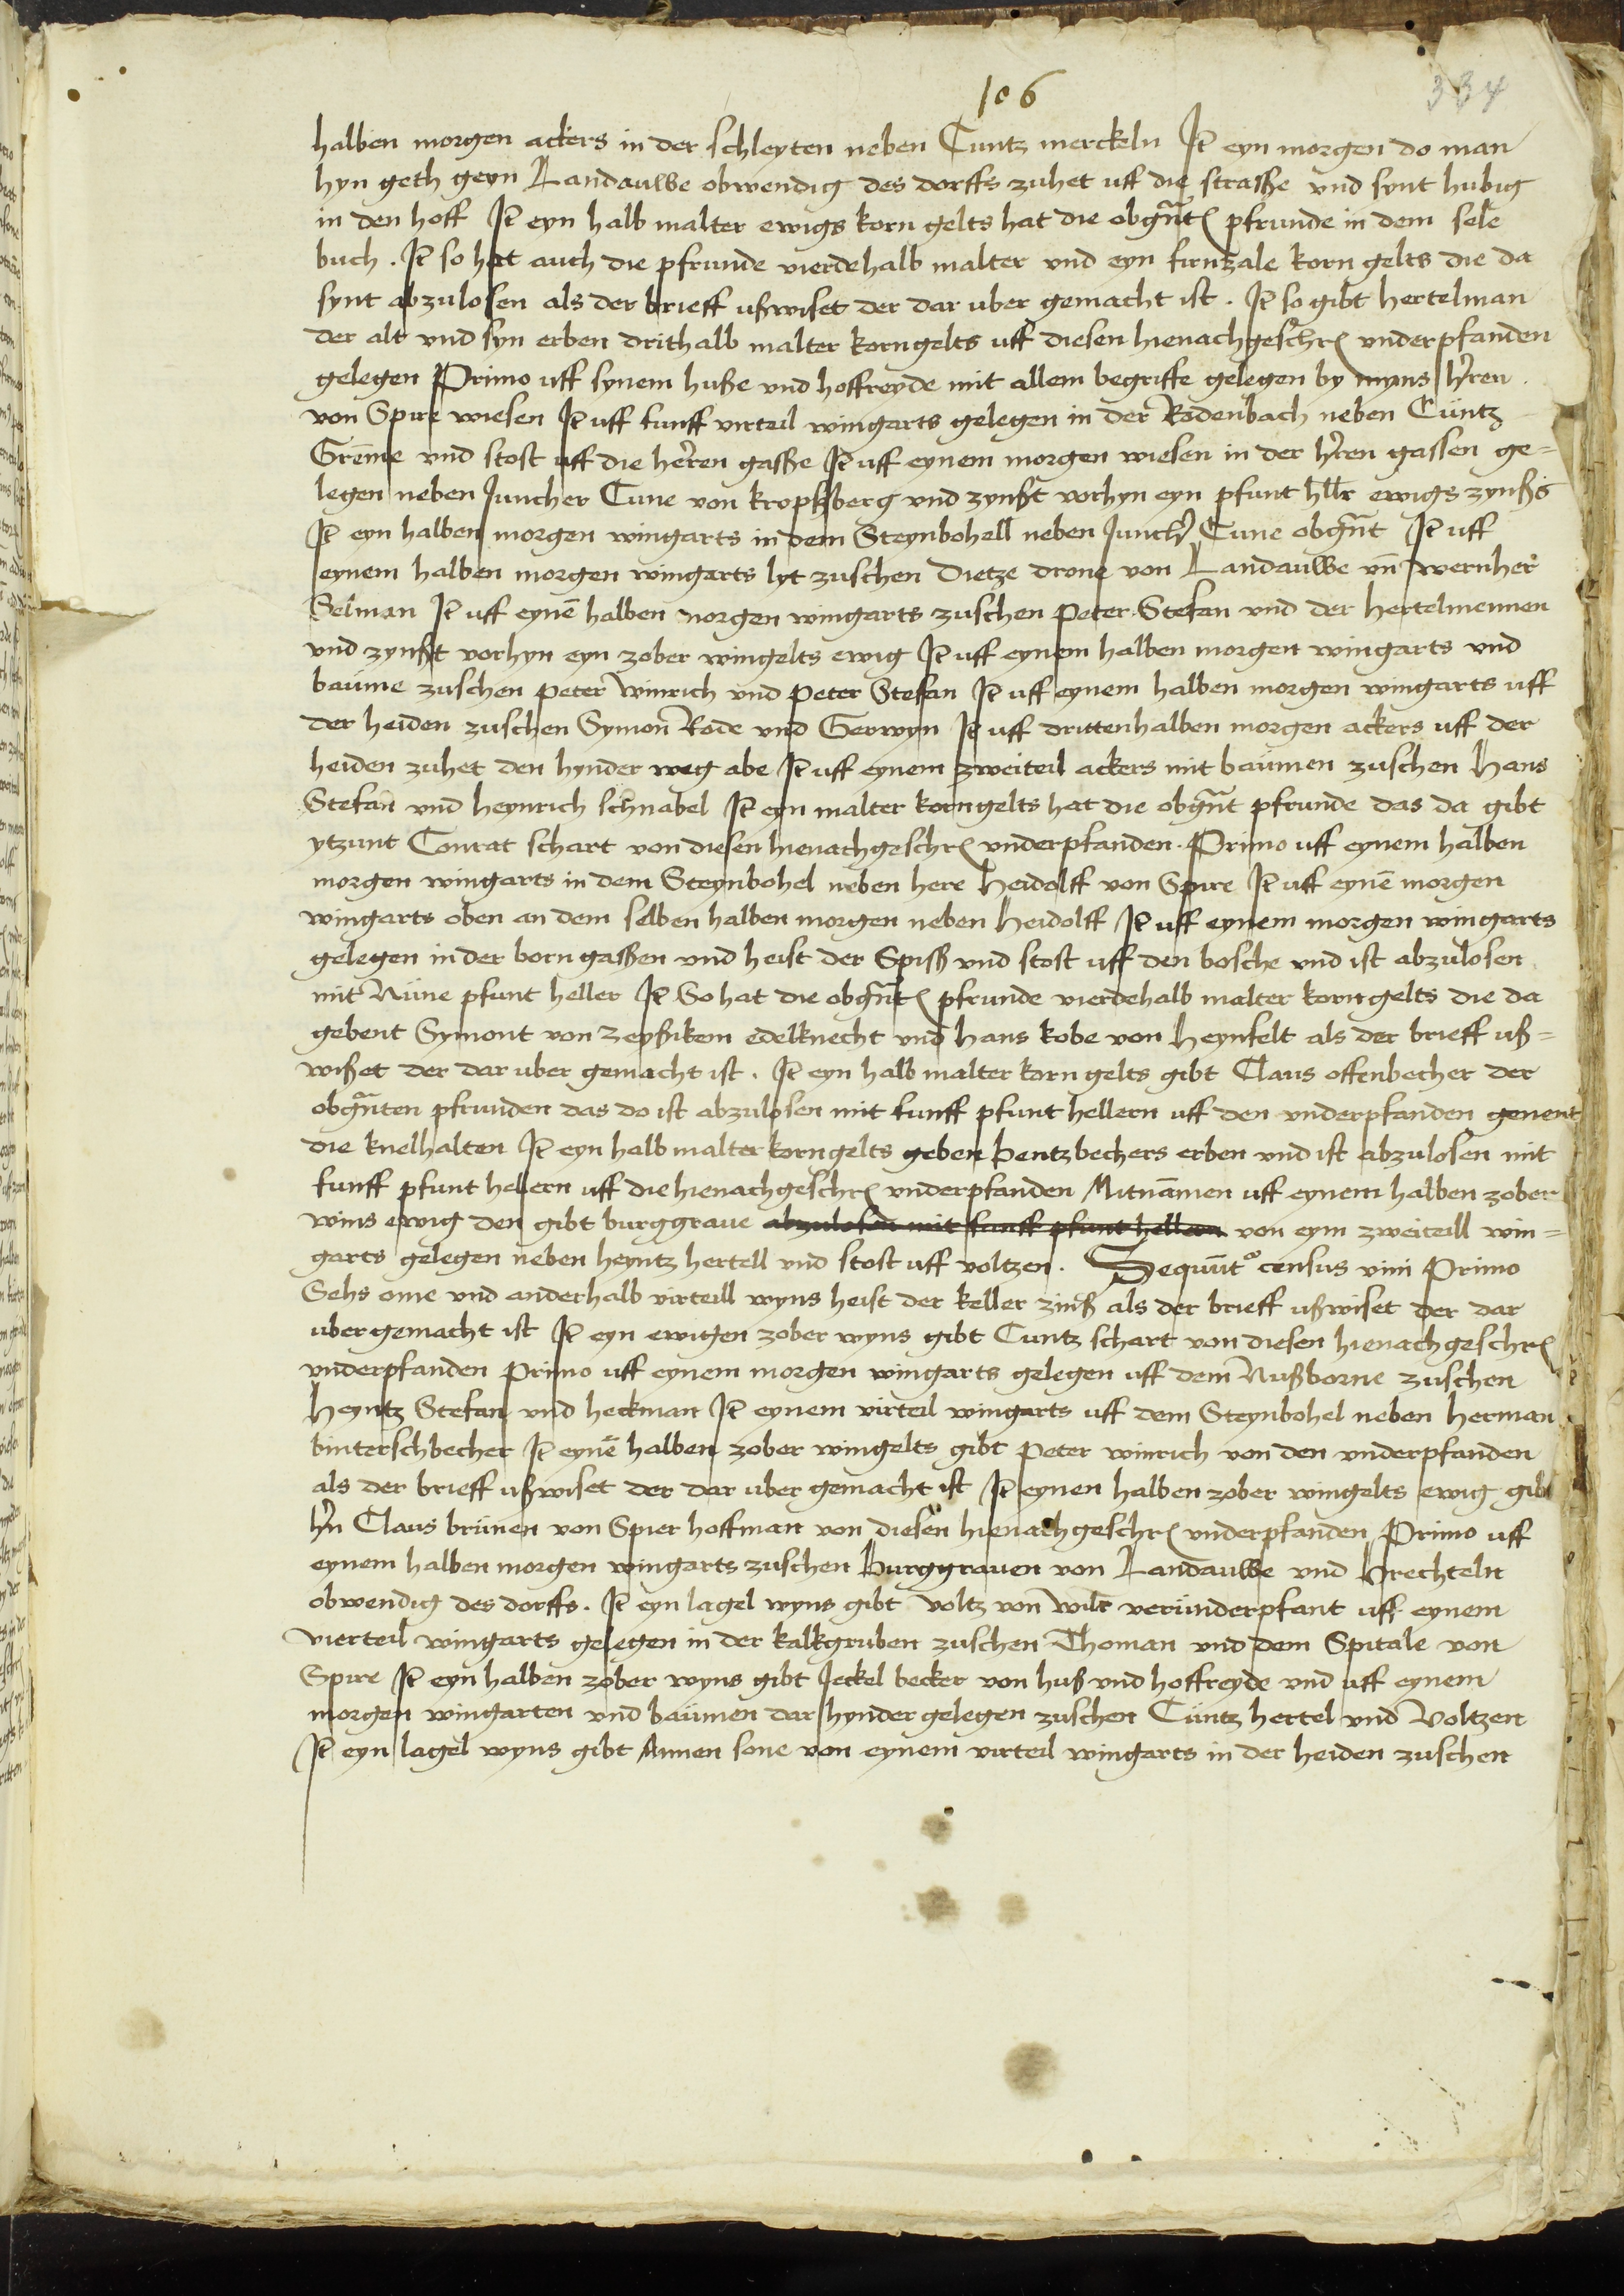 106
334
halben morgen ackers in der schleyten neben Cuntz merckeln Jt eyn morgen do man
hyn geth geyn Landauwe obwendig des dorffs zuhet uff die strasse und synt hubig
in den hoff Jt eyn halb malter ewigs korn gelts hat die obgnt pfrunde in dem sele
buch . Jt so hat auch die pfrunde vierdehalb malter und eyn firnzale korn gelts die da
synt abzulosen als der brieff ußwiset der dar uber gemacht ist . Jt so gibt hertelman
der alt und syn erben drithalb malter korngelts uff diesen hienachgeschr underpfanden
gelegen Primo uff synem huße und hoffreyde mit allem begriffe gelegen by myns hren
von Spire wiesen Jt uff funff virteil wingarts gelegen in der Rodenbach neben Cuntz
Greme und stost uff die heren gasse Jt uff eynem morgen wiesen in der hren gassen ge=
legen neben Juncher Cune von kropsberg und zynßt vorhyn eyn pfunt hllr ewigs zynßs
Jt eyn halben morgen wingarts in dem Steynbohell neben Junch Cune obgnt Jt uff
eynem halben morgen wingarts lyt zuschen Dietze drone von Landauwe un wernher
Selman Jt uff eynē halben morgen wingarts zuschen Peter Stefan und der hertelmennen
und zynßt vorhyn eyn zober wingelts ewig Jt uff eynem halben morgen wingarts und
baume zuschen peter winrich und peter Stefan Jt uff eynem halben morgen wingarts uff
der heiden zuschen Symon Rode und Gerwyn Jt uff drittenhalben morgen ackers uff der
heiden zuhet den hynder weg abe Jt uff eynem zweiteil ackers mit baumen zuschen Hans
Stefan und heynrich schnabel Jt eyn malter korngelts hat die obgnt pfrunde das da gibt
ytzunt Conrat schart von diesen hienachgeschr underpfanden . Primo uff eynem halben
morgen wingarts in dem Steynbohel neben here Heidolff von Spire Jt uff eynē morgen
wingarts oben an dem selben halben morgen neben Heidolff Jt uff eynem morgen wingarts
gelegen in der born gassen und heist der Spiß und stost uff den bosche und ist abzulosen
mit Nune pfunt heller Jt So hat die obgnt pfrunde vierdehalb malter korngelts die da
gebent Symont von Zeyßikem edelknecht und Hans kobe von Heynfelt als der brieff uß=
wißet der dar uber gemacht ist . Jt eyn halb malter korn gelts gibt Claus offenbecher der
obgnten pfrunden das do ist abzulosen mit funff pfunt hellern uff den underpfanden genent
die knelhalten Jt eyn halb malter korngelts geben bentzbechers erben und ist abzulosen mit
funff pfunt hellern uff die hienachgeschr underpfanden Mitnamen uff eynem halben zober
wins ewig den gibt burggraue abzulosen mit funff pfunt hellern von eym zweiteill win=
garts gelegen neben heyntz hertell und stost uff voltzen . Sequūt census vini Primo
Sehs ome und anderhalb virteill wyns heist der keller zinß als der brieff ußwiset der dar
uber gemacht ist Jt eyn ewigen zober wyns gibt Cuntz schart von diesen hienachgeschr
underpfanden Primo uff eynem morgen wingarts gelegen uff dem Nußborne zuschen
Heyntz Stefan und heckman Jt eynem virteil wingarts uff dem Steynbohel neben herman
binterschbecher Jt eynē halben zober wingelts gibt Peter winrich von den underpfanden
als der brieff ußwiset der dar uber gemacht ist Jt eynen halben zober wingelts ewig gibt
hn Claus brunen von Spier hoffman von diesen hienachgeschr underpfanden Primo uff
eynem halben morgen wingarts zuschen Burggrauen von Landauwe und Brechteln
obwendig des dorffs . Jt eyn lagel wyns gibt voltz von wilr verunderpfant uff eynem
vierteil wingarts gelegen in der kalkgruben zuschen Thoman und dem Spitale von
Spire Jt eyn halben zober wyns gibt Jeckel becker von huß und hoffreyde und uff eynem
morgen wingarten und baumen dar hynder gelegen zuschen Cuntz hertel und Voltzen
Jt eyn lagel wyns gibt Annen sone von eynem virteil wingarts in der heiden zuschen